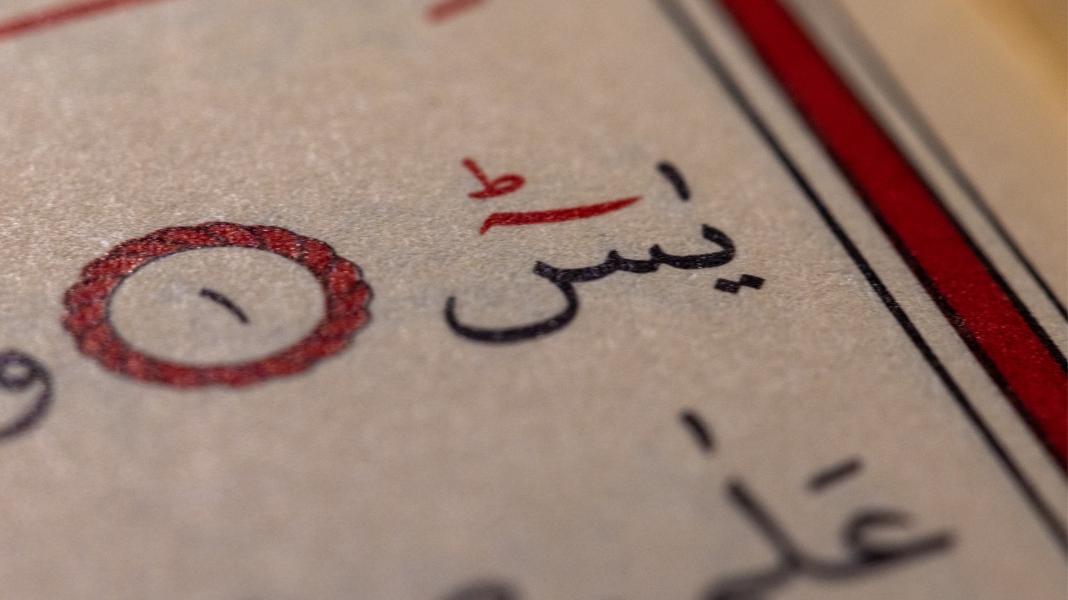 يٰسٓ ۚ ط ١
عَلٰى